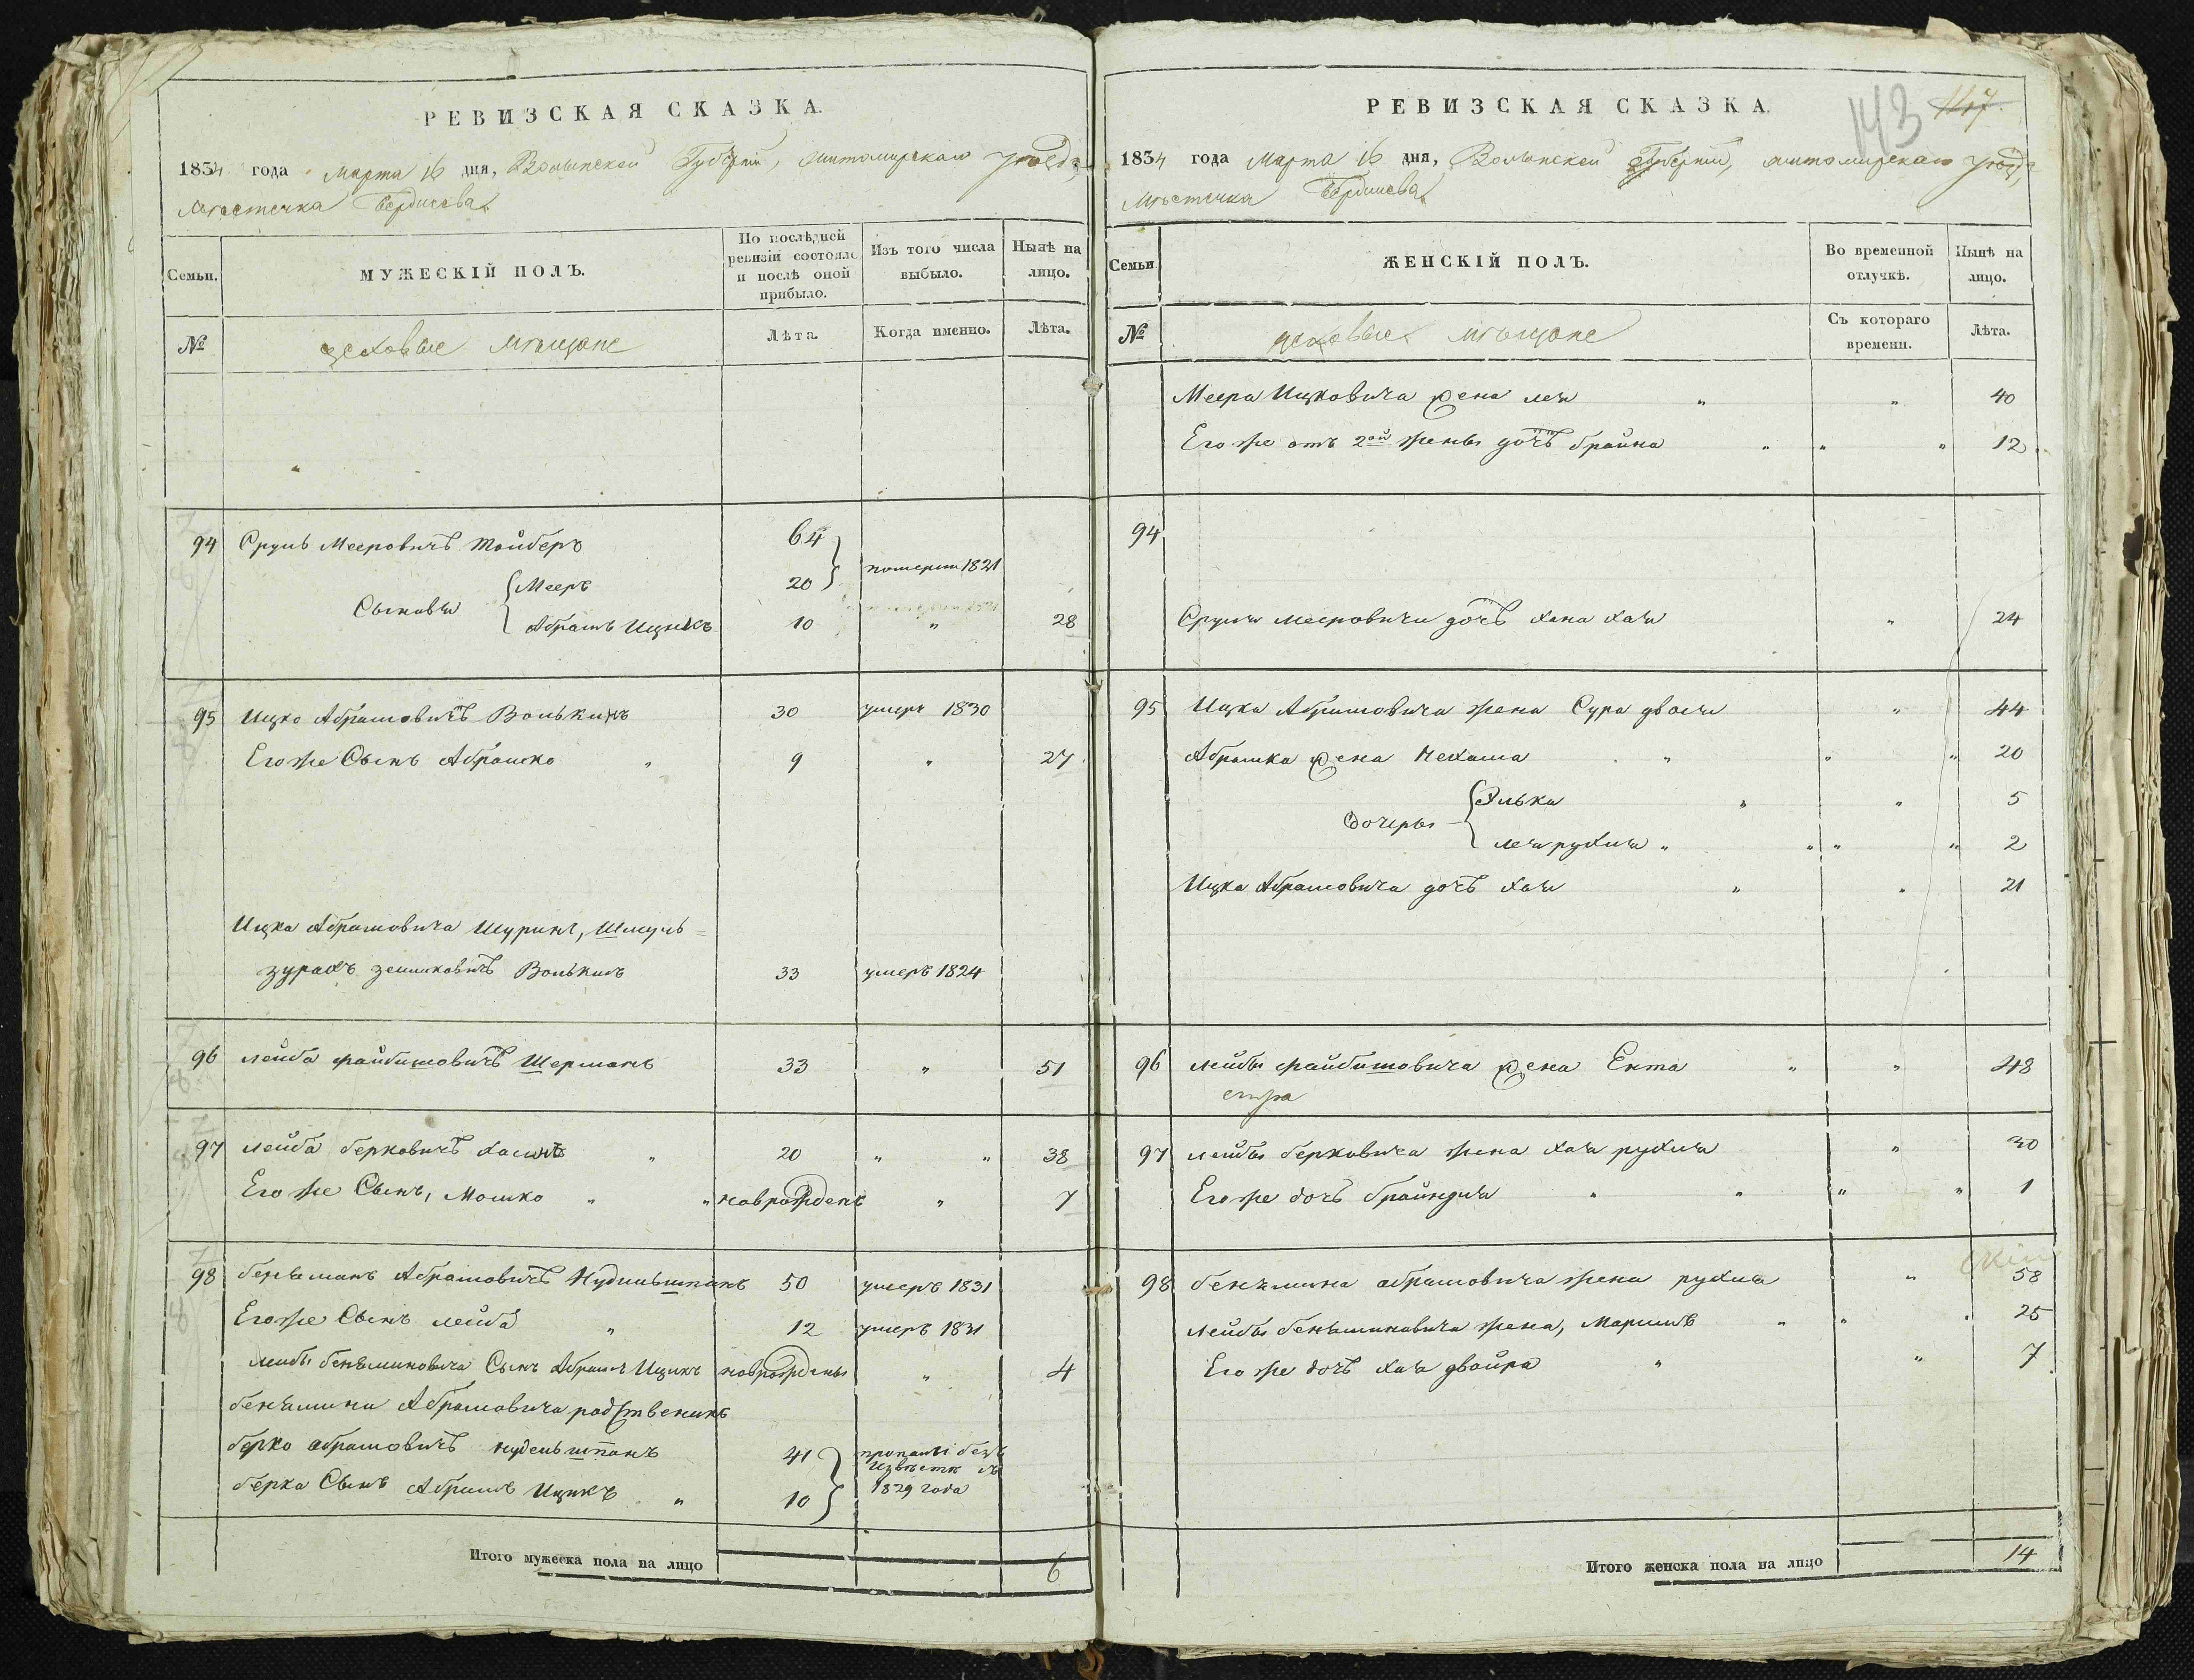 РЕВИЗСКАЯ СКАЗКА.
1834 года Марта 16 дня, Волынской Губернии, Житомирскаго уѣзда,
Мѣстечка Бердичева
Семьи.
МУЖЕСКІЙ ПОЛЪ.
По послѣдней ревизіи состояло и послѣ оной прибыло.
Изъ того числа выбыло.
Нынѣ на лицо.
№
цеховые мѣщане
Лѣта.
Когда именно.
Лѣта.
94 Сруль Мееровичъ Тойберъ 64
Сыновья { Мееръ 20 } померли 1821
Абрамъ Ицикъ 10 " 28
95 Ицко Абрамовичъ Волькинъ 30 умеръ 1830
Его же Сынъ Абрамко " 9 " 27
Ицка Абрамовича Шуринъ, Шмуль=
зурахъ Волькинъ 33 умеръ 1824
96 Лейба Файбишовичъ Шерманъ 33 " 51
97 Лейба Берковичъ " 20 " " 38
Его же Сынъ, Мошко " " новрожденъ " 7
98 Беньяминъ Абрамовичъ Нудельшпанъ 50 умеръ 1831
Его же Сынъ Лейба " 12 умеръ 1831
Лейбы Беньяминовича Сынъ Абрамъ Ицикъ новрожденъ " 4
Беньямина Абрамовича родственикъ
Берко Абрамовичъ Нудельшпанъ 41 } пропавши безъ
извѣстн съ
Берка Сынъ Абрамъ Ицикъ " 10 1829 года
Итого мужеска пола на лицо 6
РЕВИЗСКАЯ СКАЗКА.
143 117.
1834 года Марта 16 дня, Волынской Губерніи, Житомирскаго уѣзда,
Мѣстечка Бердичева
Семьи
ЖЕНСКІЙ ПОЛЪ.
Во временной отлучкѣ.
Нынѣ на лицо.
№
цеховые мѣщане
Съ котораго времени.
Лѣта.
Меера Ицковича жена Лея " " 40
Его же отъ 2ой жены дочь Брайна " " " 12
94
Сруля Мееровича дочь Хана Хая " 24
95 Ицка Абрамовича жена Сура Двося " 44
Абрамка жена Нехама " " " 20
Дочеры { Элька " " 5
Лея Рухля " " " " 2
Ицка Абрамовича дочь Хая " " 21
96 Лейбы Файбишовича жена Ента " " 48
97 Лейбы Берковича жена Хая Рухля " 30
Его же дочь Брайндля " " " " 1
98 Беньямина Абрамовича жена Рухля " 58
Лейбы Беньяминовича жена, Маримъ " " " 25
Его же дочь Хая Двойра " " 7
Итого женска пола на лицо 14